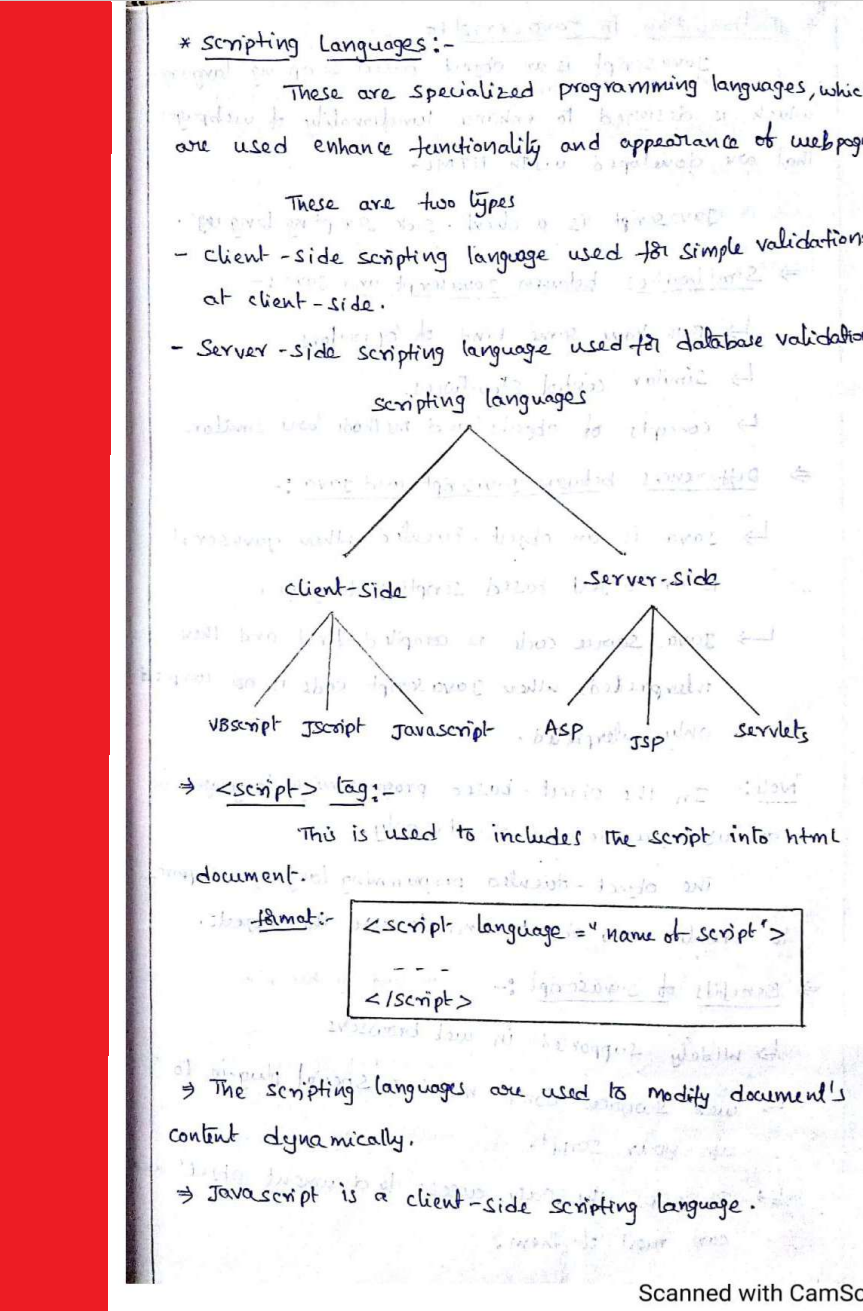 * Scripting Languages:-
These are specialized programming languages, whic
are used enhance functionality and appearance of webpag
These are two types
- client-side scripting language used for simple validations
at client-side.
- Server-side scripting language used for database validatio
scripting languages
client-side Server-side
VBscript JScript Javascript ASP JSP Servlets
⇒ <script> tag:-
This is used to includes the script into html
document.
format:- <script language = "name of script">
- - -
</script>
⇒ The scripting languages are used to modify document's
content dynamically.
⇒ Javascript is a client-side scripting language.
Scanned with CamSc